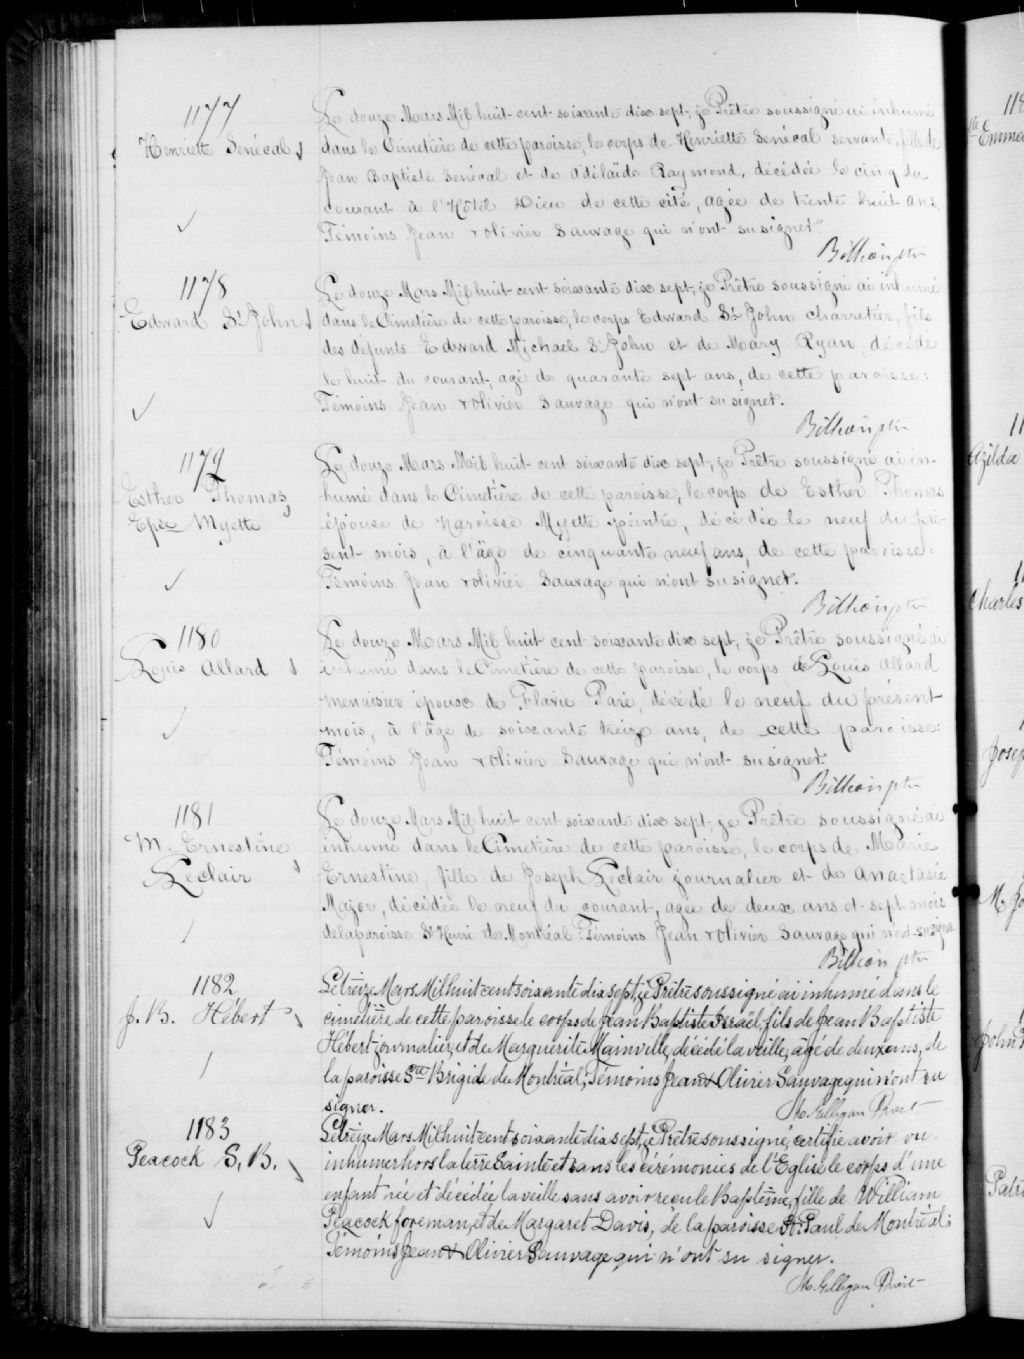 1177
Henriette Senécal
Le douze Mars Mil huit cent soixante dix sept, je Prêtre soussigné ai inhumé
dans le Cimetière de cette paroisse, le corps de Henriette Senécal servante, fille de
Jean Baptiste Senécal et de Adélaïde Raymond, décédée le cinq du
courant à l'Hôtel Dieu de cette cité, agée de trente huit ans.
Témoins Jean & Olivier Sauvage qui n'ont su signer.
1178
Edward St John
Le douze Mars Mil huit cent soixante dix sept, je Prêtre soussigné ai inhumé
dans le Cimetière de cette paroisse, le corps Edward St John charretier, fils
des defunts Edward Michael St John et de Mary Ryan, décédé
le huit du courant, agé de quarante sept ans, de cette paroisse:
Témoins Jean & Olivier Sauvage qui n'ont su signer.
1179
Esther Thomas
Epse Myette
Le douze Mars Mil huit cent soixante dix sept, je Prêtre soussigné ai in-
humé dans le Cimetière de cette paroisse, le corps de Esther Thomas
épouse de Narcisse Myette peintre, décédée le neuf du pré-
sent mois, à l'âge de cinquante neuf ans, de cette paroisse:
Témoins Jean & Olivier Sauvage qui n'ont su signer.
1180
Louis Allard
Le douze Mars Mil huit cent soixante dix sept, je Prêtre soussigné ai
inhumé dans le Cimetière de cette paroisse, le corps de Louis Allard
menuisier époux de Flavie Paré, décédé le neuf du présent
mois, à l'âge de soixante treize ans, de cette paroisse:
Témoins Jean & Olivier Sauvage qui n'ont su signer.
1181
M. Ernestine
Leclair
Le douze Mars Mil huit cent soixante dix sept, je Prêtre soussigné ai
inhumé dans le Cimetière de cette paroisse, le corps de Marie
Ernestine, fille de Joseph Leclair journalier et de Anastasie
Major, décédée le neuf du courant, agée de deux ans et sept mois
de la paroisse St Henri de Montréal: Témoins Jean & Olivier Sauvage qui n'ont su signer
1182
J. B. Hébert
Le treize Mars Mil huit cent soixante dix sept, je Prêtre soussigné ai inhumé dans le
cimetière de cette paroisse le corps de Jean Baptiste Israël, fils de Jean Baptiste
Hébert journalier, et de Marguerite Mainville, décédé la veille, âgé de deux ans, de
la paroisse Ste Brigide de Montréal; Témoins Jean & Olivier Sauvage qui n'ont su
signer.
M. Gilligan Priest
1183
Peacock S. B.
Le treize Mars Mil huit cent soixante dix sept, je Prêtre soussigné, certifie avoir vu
inhumer hors la terre Sainte et sans les cérémonies de l'Eglise le corps d'une
enfant née et décédée la veille sans avoir reçu le Baptême, fille de William
Peacock foreman, et de Margaret Davis, de la paroisse St. Paul de Montréal;
Témoins Jean & Olivier Sauvage qui n'ont su signer.
M. Gilligan Priest
Azilda
Charles